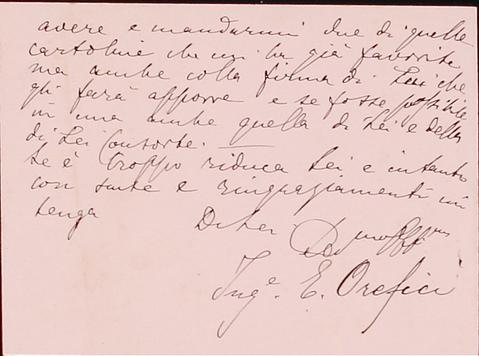 avere e mandarmi due di quelle
cartoline che mi ha già favorite
ma anche colla firma di Lei che
gli farà apporre e se fosse possibile
in una anche quella di Lei e della
di Lei Consorte. —
Se è troppo riduca Lei e intanto
con scuse e ringraziamenti mi
tenga
Di Lei
Ing.e E. Orefici